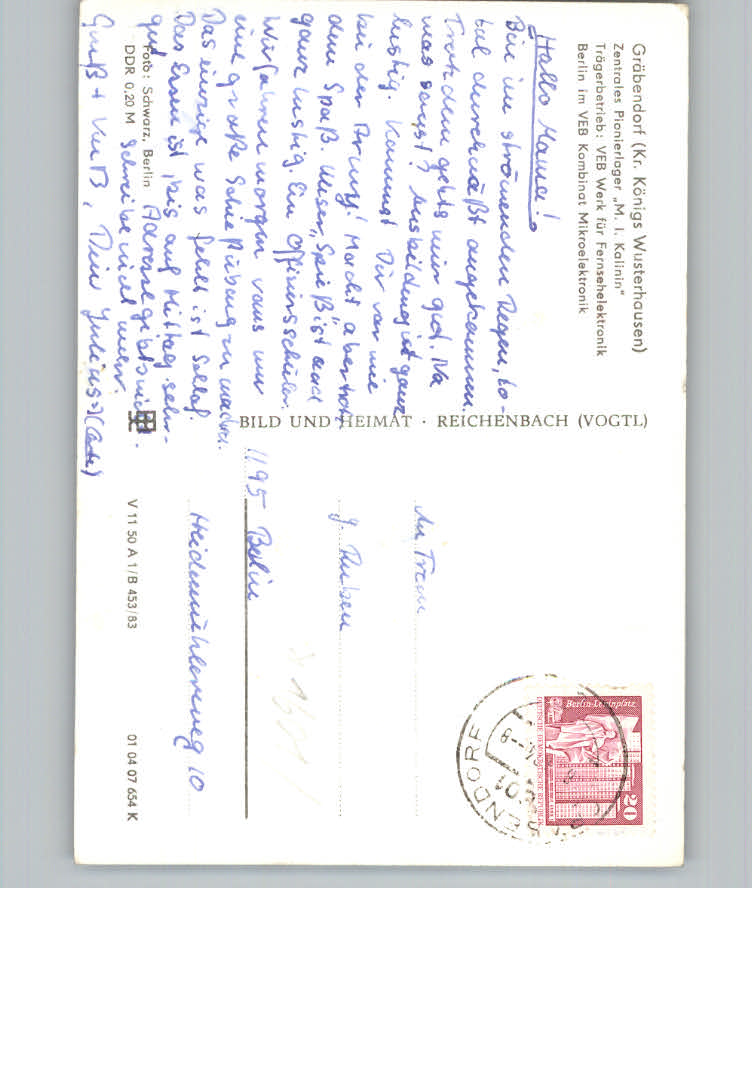 Gräbendorf (Kr. Königs Wusterhausen)
Zentrales Pionierlager „M. I. Kalinin"
Trägerbetrieb: VEB Werk für Fernsehelektronik
Berlin im VEB Kombinat Mikroelektronik
Hallo Mama!
Bin im strömenden Regen, to-
tal durchnäßt angekommen.
Trotzdem gehts mir gut. Na
was sagst? Ausbildung ist ganz
lustig. Kommst Dir vor wie
bei der Army! Macht aber trotz-
dem Spaß. Unser „Spieß" ist auch
ganz lustig. Ein Offiziersschüler.
Wir fahren morgen raus um
eine große Schießübung zu machen.
Das einzige was fehlt ist Schlaf.
Das Essen ist bis auf Mittag sehr
gut. Adresse gibts nicht.
Schreibe nicht mehr.
Gruß + Kuß, Dein Julius
Foto: Schwarz, Berlin
DDR 0,20 M
BILD UND HEIMAT · REICHENBACH (VOGTL)
V 11 50 A 1/B 453/83
01 04 07 654 K
An Frau
J. Ruben
1195 Berlin
Heidemühlerweg 10
Berlin-Leninplatz
DEUTSCHE DEMOKRATISCHE REPUBLIK
20